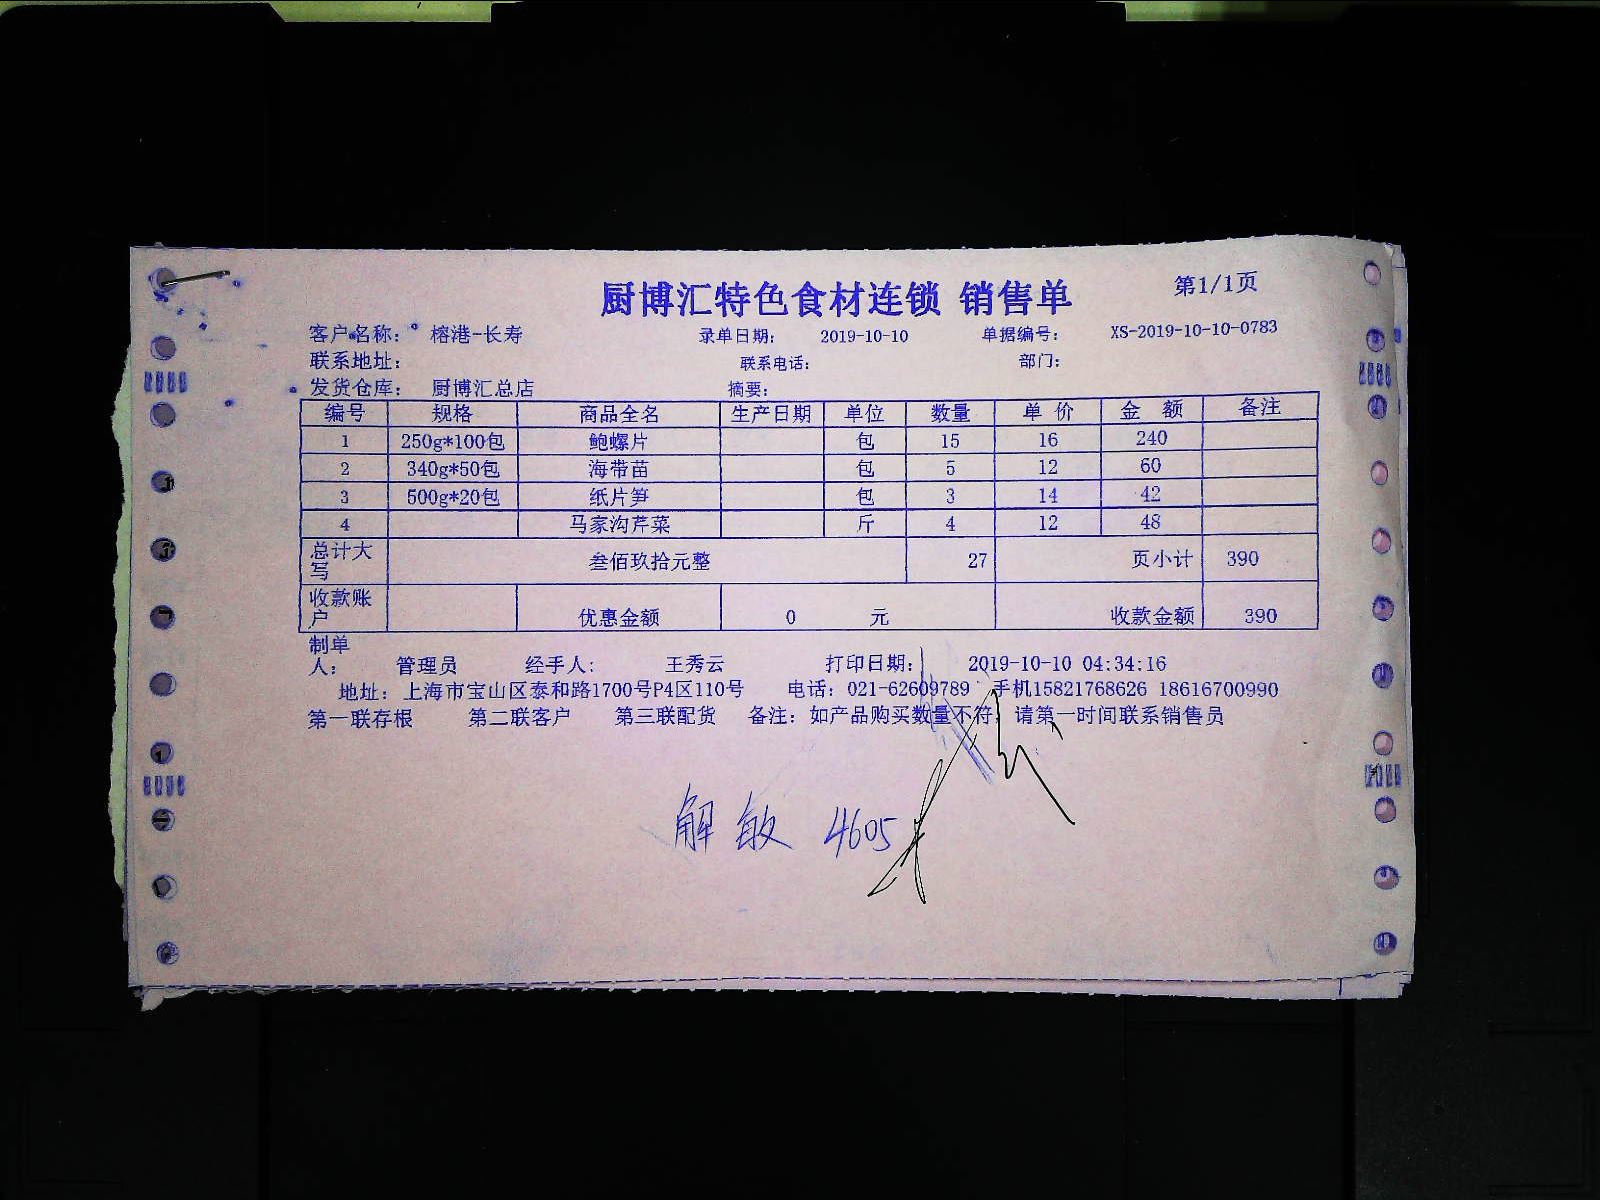 厨博汇特色食材连锁 销售单 第1/1页
客户名称： 榕港-长寿 录单日期： 2019-10-10 单据编号： XS-2019-10-10-0783
联系地址： 联系电话： 部门：
发货仓库： 厨博汇总店 摘要：
编号 规格 商品全名 生产日期 单位 数量 单 价 金 额 备注
1 250g*100包 鲍螺片 包 15 16 240
2 340g*50包 海带苗 包 5 12 60
3 500g*20包 纸片笋 包 3 14 42
4 马家沟芹菜 斤 4 12 48
总计大写 叁佰玖拾元整 27 页小计 390
收款账户 优惠金额 0 元 收款金额 390
制单人： 管理员 经手人： 王秀云 打印日期： 2019-10-10 04:34:16
地址：上海市宝山区泰和路1700号P4区110号 电话：021-62609789 手机15821768626 18616700990
第一联存根 第二联客户 第三联配货 备注：如产品购买数量不符，请第一时间联系销售员
解敏 4605